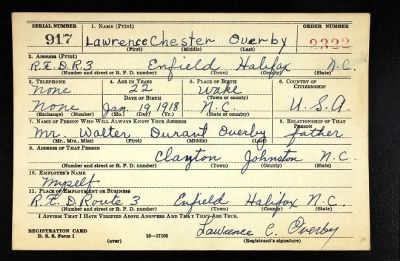 SERIAL NUMBER 1. NAME (Print) ORDER NUMBER
917 Lawrence Chester Overby 2322
(First) (Middle) (Last)
2. ADDRESS (Print)
R.F.D.R.3 Enfield Halifax N.C.
(Number and street or R. F. D. number) (Town) (County) (State)
3. TELEPHONE 4. AGE IN YEARS 5. PLACE OF BIRTH 6. COUNTRY OF CITIZENSHIP
None 22 Wake
DATE OF BIRTH (Town or county)
None Jan. 19, 1918 N.C. U.S.A
(Exchange) (Number) (Mo.) (Day) (Yr.) (State or country)
7. NAME OF PERSON WHO WILL ALWAYS KNOW YOUR ADDRESS 8. RELATIONSHIP OF THAT PERSON
Mr. Walter Durant Overby father
(Mr., Mrs., Miss) (First) (Middle) (Last)
9. ADDRESS OF THAT PERSON
Clayton Johnston N.C.
(Number and street or R. F. D. number) (Town) (County) (State)
10. EMPLOYER'S NAME
Myself
11. PLACE OF EMPLOYMENT OR BUSINESS
R.F.D Route 3 Enfield Halifax N.C.
(Number and street or R. F. D. number) (Town) (County) (State)
I AFFIRM THAT I HAVE VERIFIED ABOVE ANSWERS AND THAT THEY ARE TRUE.
Lawrence C. Overby
REGISTRATION CARD
D. S. S. Form 1 (over) 16-17105 (Registrant's signature)